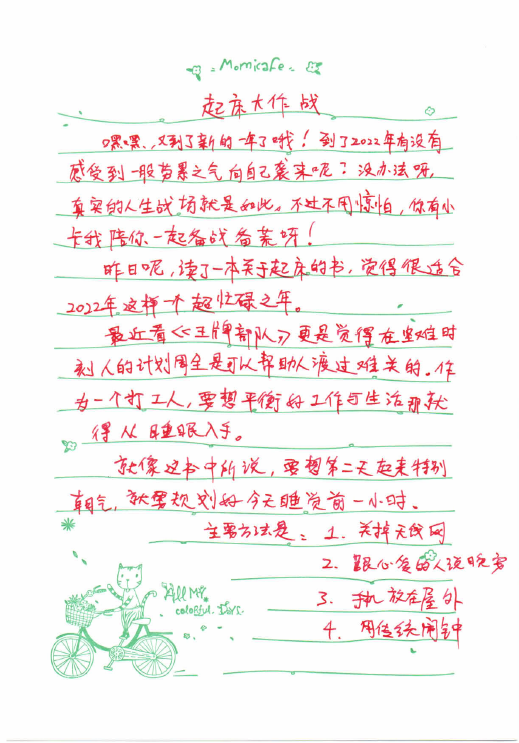 Momicafe
起床大作战
嘿嘿、又到了新的一年了哦！到了2022年有没有
感受到一股劳累之气向自己袭来呢？没办法呀，
真实的人生战场就是如此。不过不用惊怕，你有小
卡我陪你一起备战备荒呀！
昨日呢，读了一本关于起床的书，觉得很适合
2022年这样一个超忙碌之年。
最近看《王牌部队》更是觉得在坚难时
刻人的计划周全是可以帮助人渡过难关的。作
为一个打工人，要想平衡好工作与生活那就
得从睡眠入手。
就像这书中所说，要想第二天起来特别
朝气，就要规划好今天睡觉前一小时。
主要方法是：1、关掉无线网
2、跟心爱的人说晚安
3、手机放在屋外
4、用传统闹钟
All My
colorful Days.